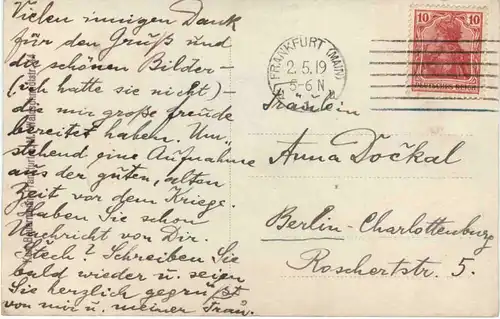 Vielen innigen Dank
für den Gruß und
die schönen Bilder-
(ich hatte sie nicht)-
die mir große Freude
bereitet haben. Um-
stehend eine Aufnahme
aus der guten, alten
Zeit vor dem Kriege.
Haben Sie schon
Nachricht von Dir.
Stech? Schreiben Sie
bald wieder u. seien
Sie herzlich gegrüßt
von mir u. meiner Frau.
FRANKFURT (MAIN)
2.5.19
5-6 N
10 10
DEUTSCHES REICH
Fräulein
Anna Dočkal
Berlin-Charlottenburg
Roscherstr. 5.